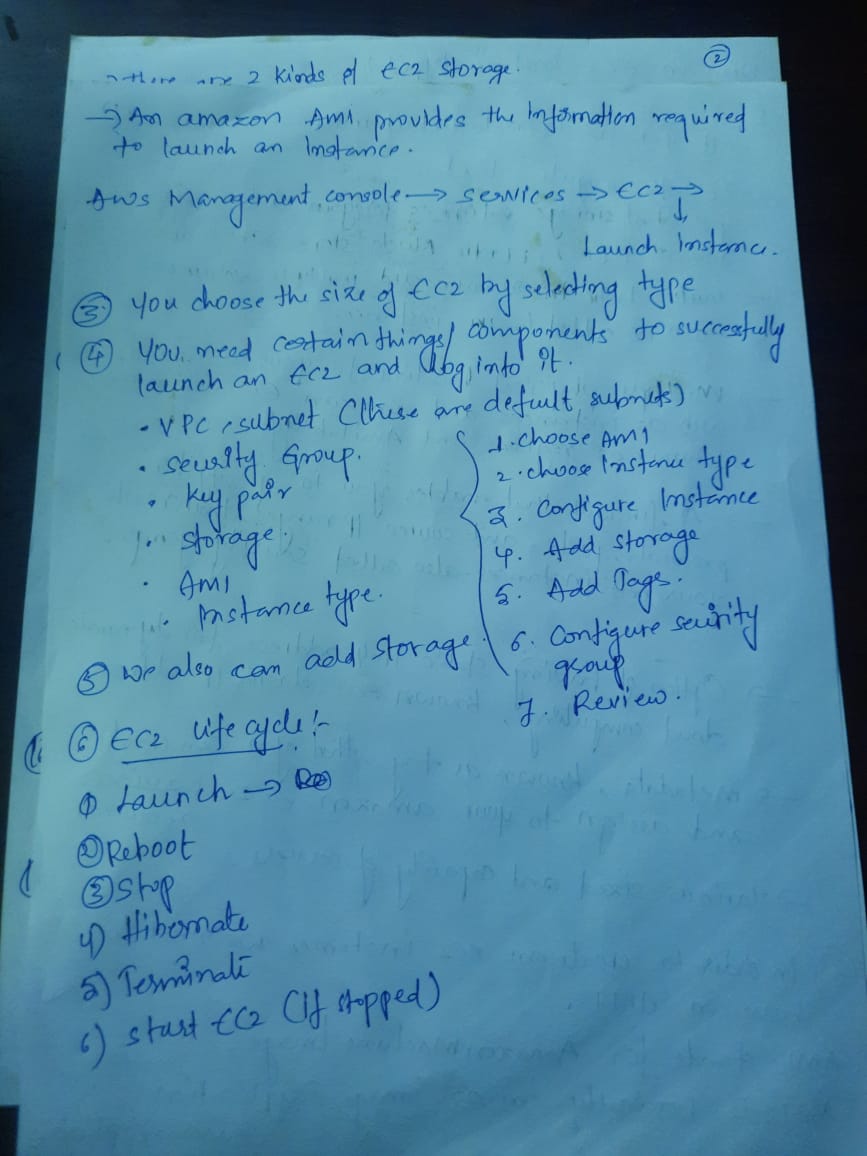 ②
→ there are 2 kinds of EC2 storage.
→ An amazon AMI provides the information required
to launch an Instance.
Aws Management console → services → EC2 →
↓
Launch Instance.
③ You choose the size of EC2 by selecting type
④ You need certain things/ components to successfully
launch an EC2 and log into it.
• VPC, subnet (these are default subnets)
• Security Group.
• Key pair
• storage.
• AMI
• Instance type.
1. choose AMI
2. choose Instance type
3. Configure Instance
4. Add storage
5. Add Tags.
6. Configure security
group
7. Review.
⑤ We also can add storage.
⑥ EC2 Life cycle:-
① Launch →
② Reboot
③ Stop
4) Hibernate
5) Terminate
6) Start EC2 (If stopped)